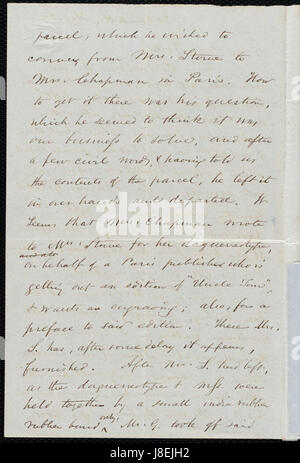 parcel, which he wished to
convey from Mrs. Stowe to
Mrs. Chapman in Paris. How
to get it there was his question,
which he seemed to think it was
our business to solve, and after
a few civil words, & having told us
the contents of the parcel, he left it
in our hands and departed. It
seems that Mrs. Chapman wrote
to Mrs. Stowe for her daguerreotype,
on behalf of a Paris publisher who is
getting out an edition of "Uncle Tom",
& wants an engraving; also, for a
preface to said edition. These Mrs.
S. has, after some delay it appears,
furnished. After Mr. S. had left,
as the daguerreotype & mss. were
held together by a small india rubber
rubber band only, Mr. G. took off said
alamy
J8EJH2